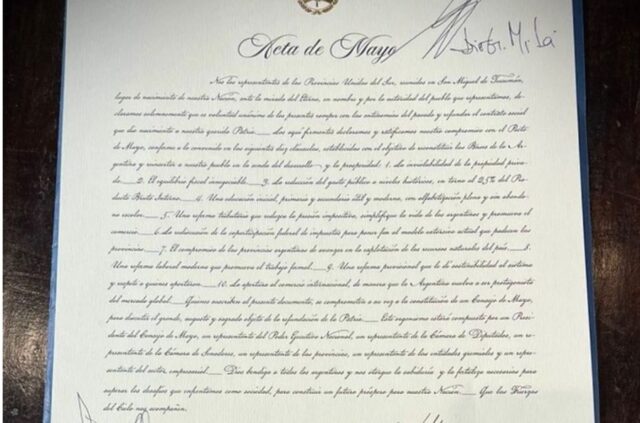 Acta de Mayo
Nos los representantes de las Provincias Unidas del Sur, reunidos en San Miguel de Tucumán,
lugar de nacimiento de nuestra Nación, ante la mirada del Eterno, en nombre y por la autoridad del pueblo que representamos, de-
claramos solemnemente que es voluntad unánime de los presentes romper con las antinomias del pasado y refundar el contrato social
que dio nacimiento a nuestra querida Patria. Los aquí firmantes declaramos y ratificamos nuestro compromiso con el Pacto
de Mayo, conforme a lo convenido en las siguientes diez cláusulas, establecidas con el objetivo de reconstituir las Bases de la Ar-
gentina y reinsertar a nuestro pueblo en la senda del desarrollo y la prosperidad: 1. La inviolabilidad de la propiedad priva-
da. 2. El equilibrio fiscal innegociable. 3. La reducción del gasto público a niveles históricos, en torno al 25% del Pro-
ducto Bruto Interno. 4. Una educación inicial, primaria y secundaria útil y moderna, con alfabetización plena y sin abando-
no escolar. 5. Una reforma tributaria que reduzca la presión impositiva, simplifique la vida de los argentinos y promueva el
comercio. 6. La rediscusión de la coparticipación federal de impuestos para poner fin al modelo extorsivo actual que padecen las
provincias. 7. El compromiso de las provincias argentinas de avanzar en la explotación de los recursos naturales del país. 8.
Una reforma laboral moderna que promueva el trabajo formal. 9. Una reforma previsional que le dé sostenibilidad al sistema
y respete a quienes aportaron. 10. La apertura al comercio internacional, de manera que la Argentina vuelva a ser protagonista
del mercado global. Quienes suscriben el presente documento, se comprometen a su vez a la constitución de un Consejo de Mayo,
para discutir el grande, augusto y sagrado objeto de la refundación de la Patria. Este organismo estará compuesto por un Presi-
dente del Consejo de Mayo, un representante del Poder Ejecutivo Nacional, un representante de la Cámara de Diputados, un re-
presentante de la Cámara de Senadores, un representante de las provincias, un representante de las entidades gremiales y un repre-
sentante del sector empresarial. Dios bendiga a todos los argentinos y nos otorgue la sabiduría y la fortaleza necesarias para
superar los desafíos que enfrentamos como sociedad, para construir un futuro próspero para nuestra Nación. Que las Fuerzas
del Cielo nos acompañen.